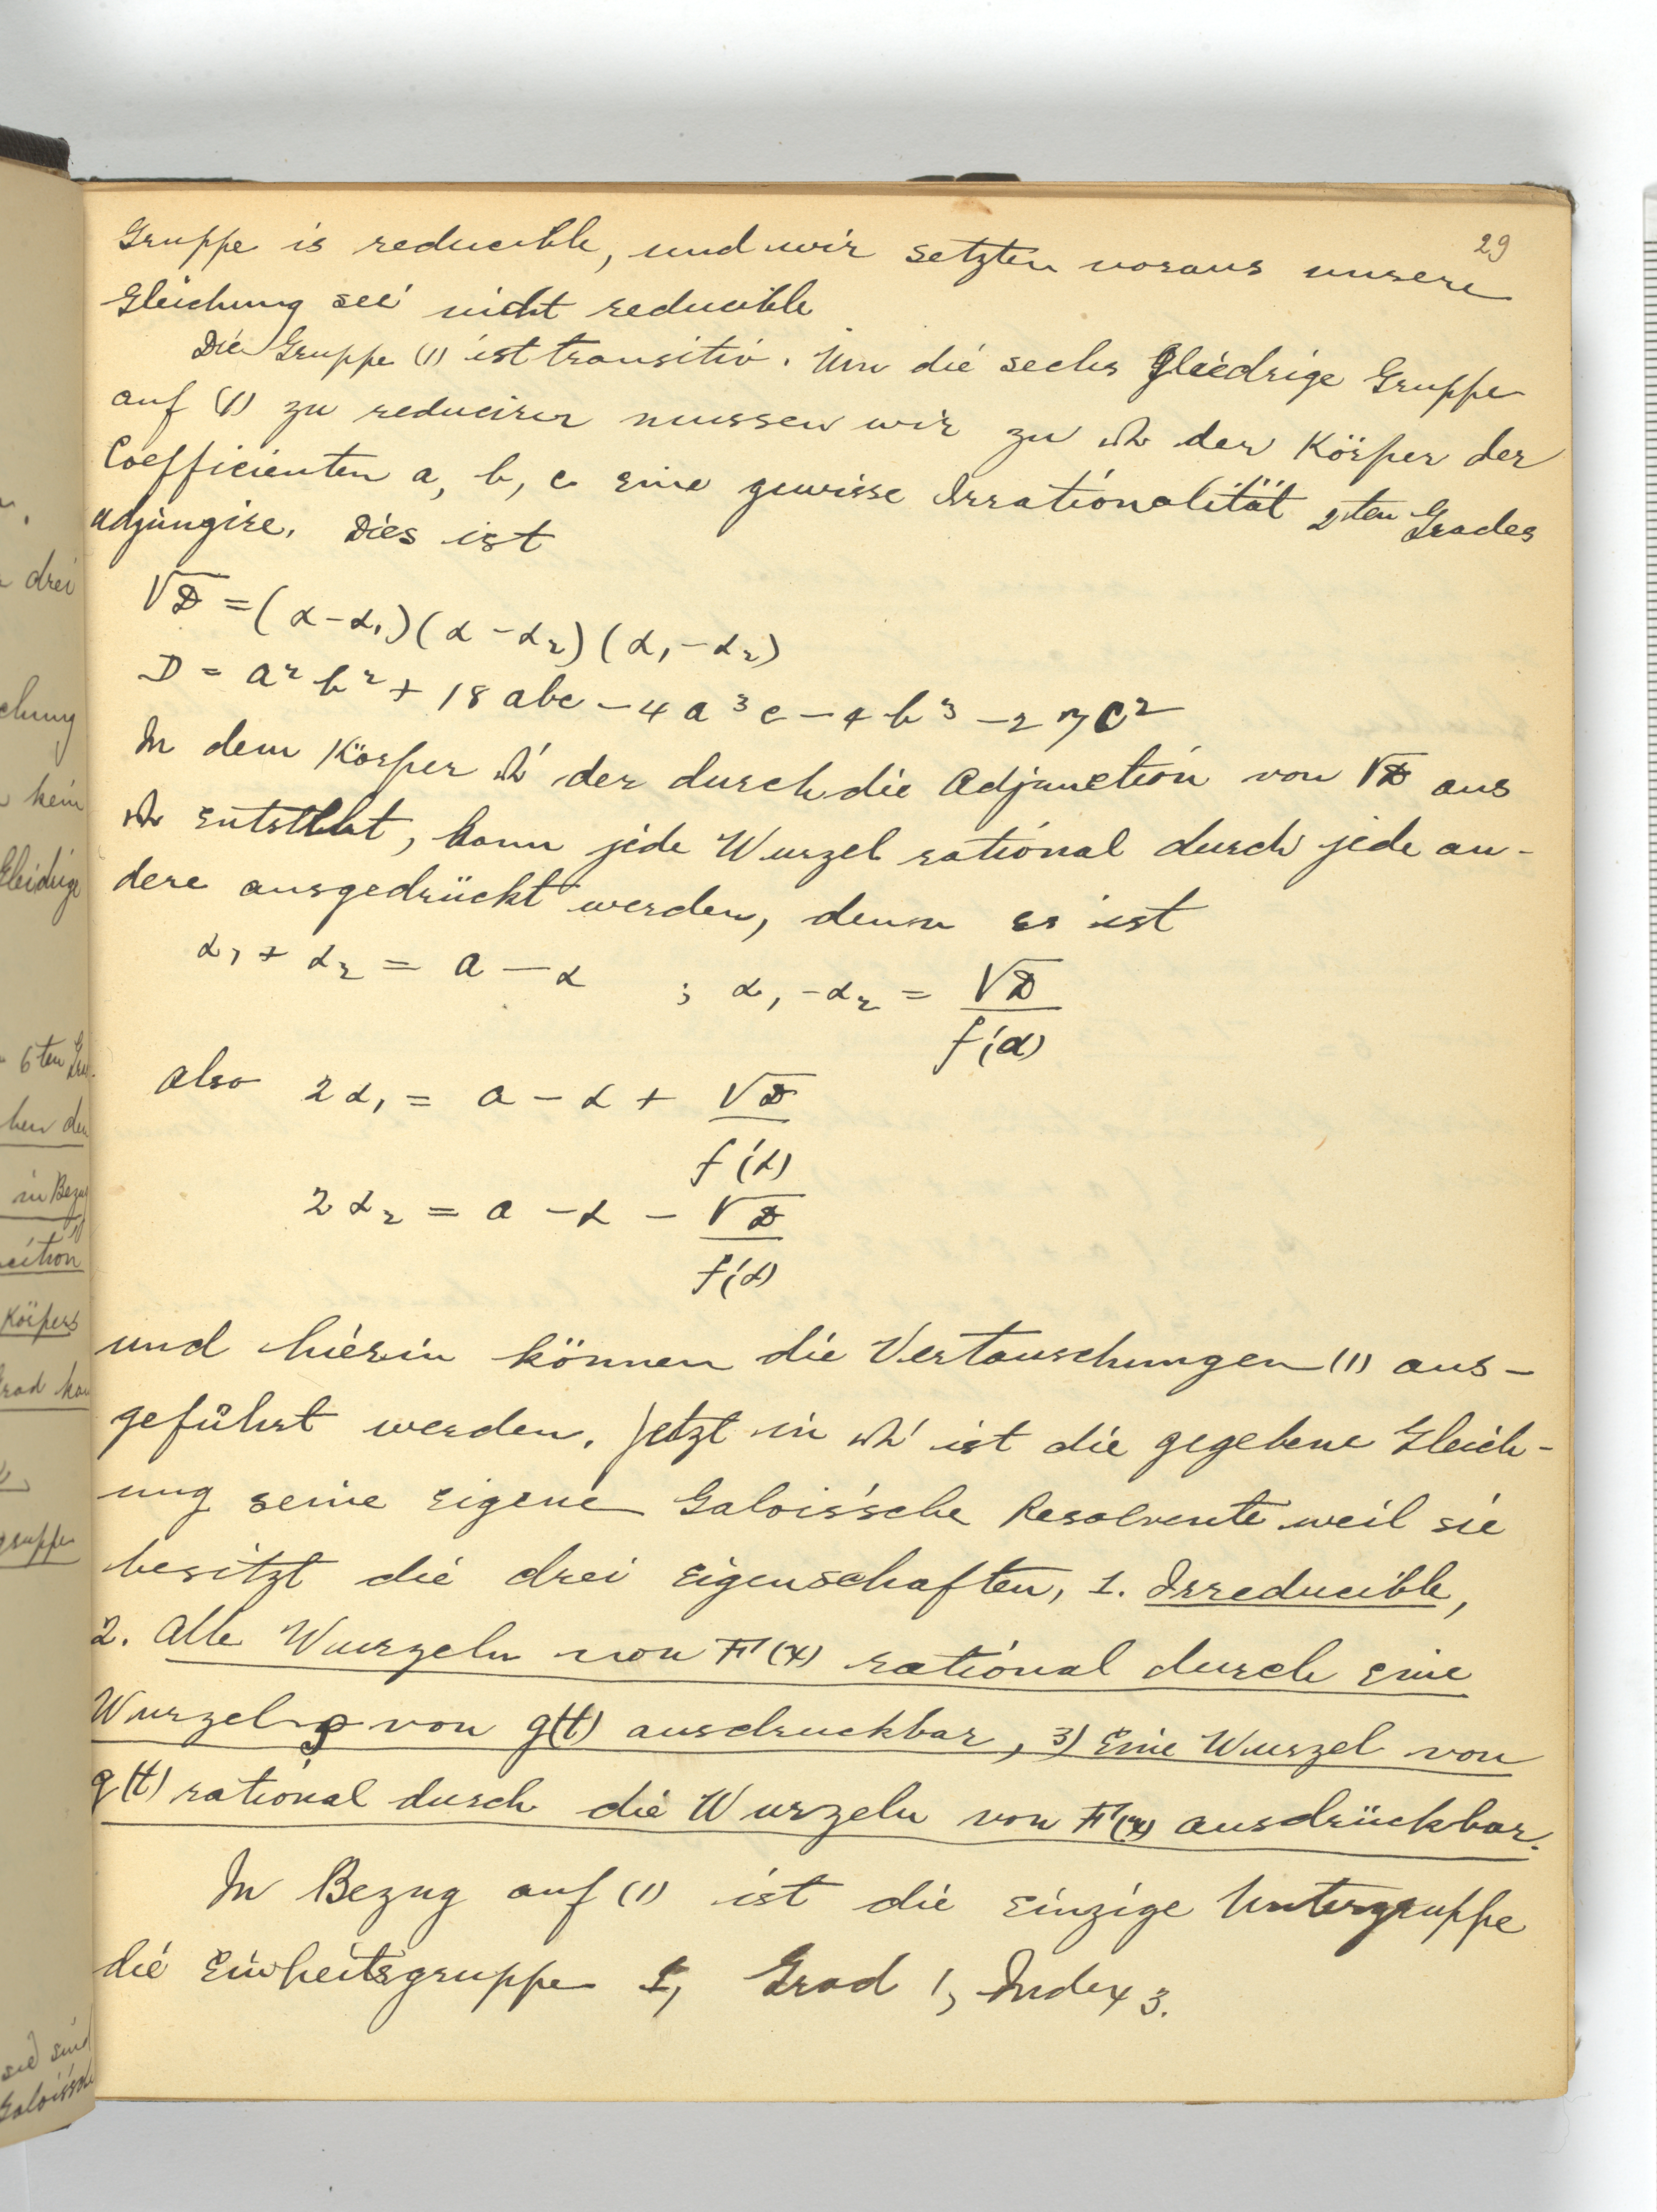 29
Gruppe is reducible, und wir setzten voraus unsere
Gleichung sei nicht reducible
Die Gruppe (1) ist transitiv. Um die sechs gliedrige Gruppe
auf (1) zu reduciren mussen wir zu Ω der Körper der
Coefficienten a, b, c eine gewisse Irrationalität 2ten Grades
adjungire. Dies ist
√D = (α-α₁)(α-α₂)(α₁-α₂)
D = a²b² + 18abc - 4a³c - 4b³ - 27c²
In dem Körper Ω' der durch die Adjunction von √D aus
Ω entsteht, kann jede Wurzel rational durch jede an-
dere ausgedrückt werden, denn es ist
α₁ + α₂ = a - α ; α₁ - α₂ = √D / f'(α)
also 2α₁ = a - α + √D / f'(α)
2α₂ = a - α - √D / f'(α)
und hierin können die Vertauschungen (1) aus-
geführt werden. Jetzt in Ω' ist die gegebene Gleich-
ung seine eigene Galois'sche Resolvente weil sie
besitzt die drei Eigenschaften, 1. Irreducible,
2. Alle Wurzeln von F(x) rational durch eine
Wurzel ρ von g(t) ausdruckbar, 3) Eine Wurzel von
g(t) rational durch die Wurzeln von F(x) ausdrückbar.
In Bezug auf (1) ist die einzige Untergruppe
die Einheitsgruppe 1, Grad 1, Index 3.
drei
kein
6ten
in Bezug
Körpers
gruppe
sie sind